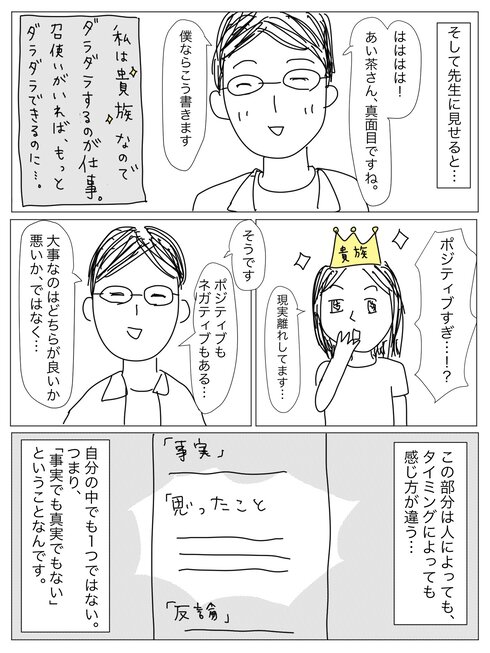 そして先生に見せると…
はははは！
あい茶さん、真面目ですね。
僕ならこう書きます
私は貴族なので
ダラダラするのが仕事。
召使いがいれば、もっと
ダラダラできるのに…。
ポジティブすぎ…!？
貴族
現実離れしてます…
そうです
ポジティブも
ネガティブもある…
大事なのはどちらが良いか
悪いか、ではなく…
この部分は人によっても、
タイミングによっても
感じ方が違う…
「事実」
「思ったこと
「反論」
自分の中でも1つではない。
つまり、
「事実でも真実でもない」
ということなんです。